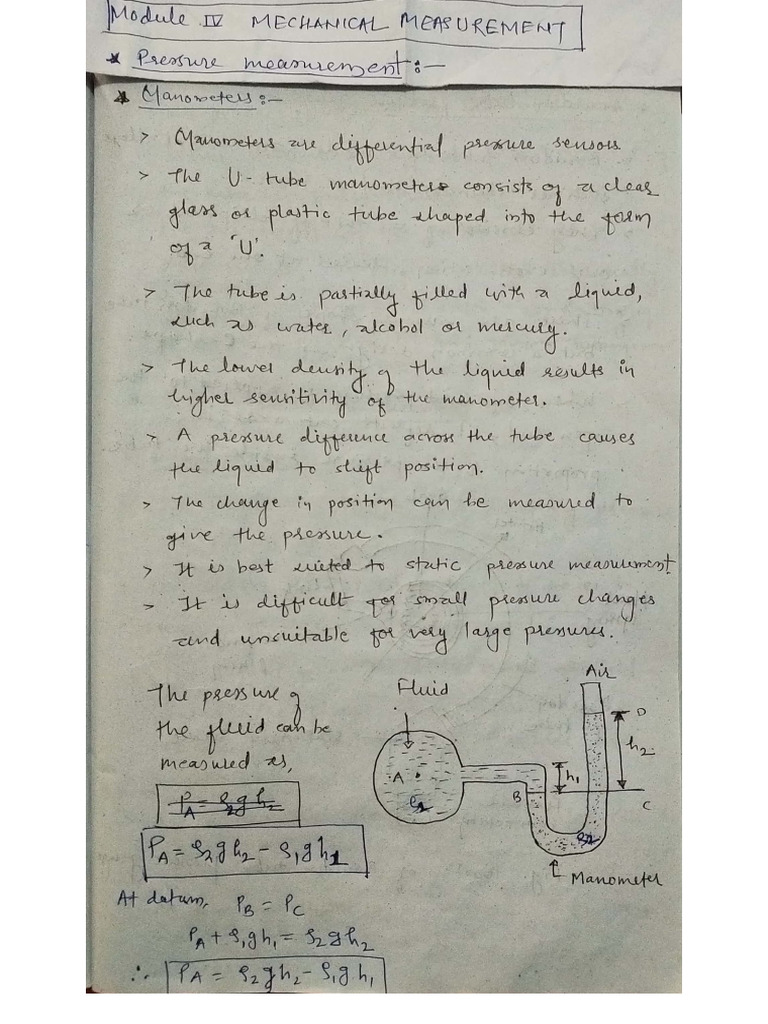 Module IV MECHANICAL MEASUREMENT
* Pressure measurement:-
* Manometers:-
> Manometers are differential pressure sensors
> The U-tube manometers consists of a clear
glass or plastic tube shaped into the form
of a 'U'.
> The tube is partially filled with a liquid,
such as water, alcohol or mercury.
> The lower density of the liquid results in
higher sensitivity of the manometer.
> A pressure difference across the tube causes
the liquid to shift position.
> The change in position can be measured to
give the pressure.
> It is best suited to static pressure measurement
> It is difficult for small pressure changes
and unsuitable for very large pressures.
The pressure of
the fluid can be
measured as,
P_A = ρ₂gh₂
P_A = ρ₂gh₂ - ρ₁gh₁
At datum, P_B = P_C
P_A + ρ₁gh₁ = ρ₂gh₂
∴ P_A = ρ₂gh₂ - ρ₁gh₁
Fluid
Air
A
B
C
D
h₁
h₂
Manometer